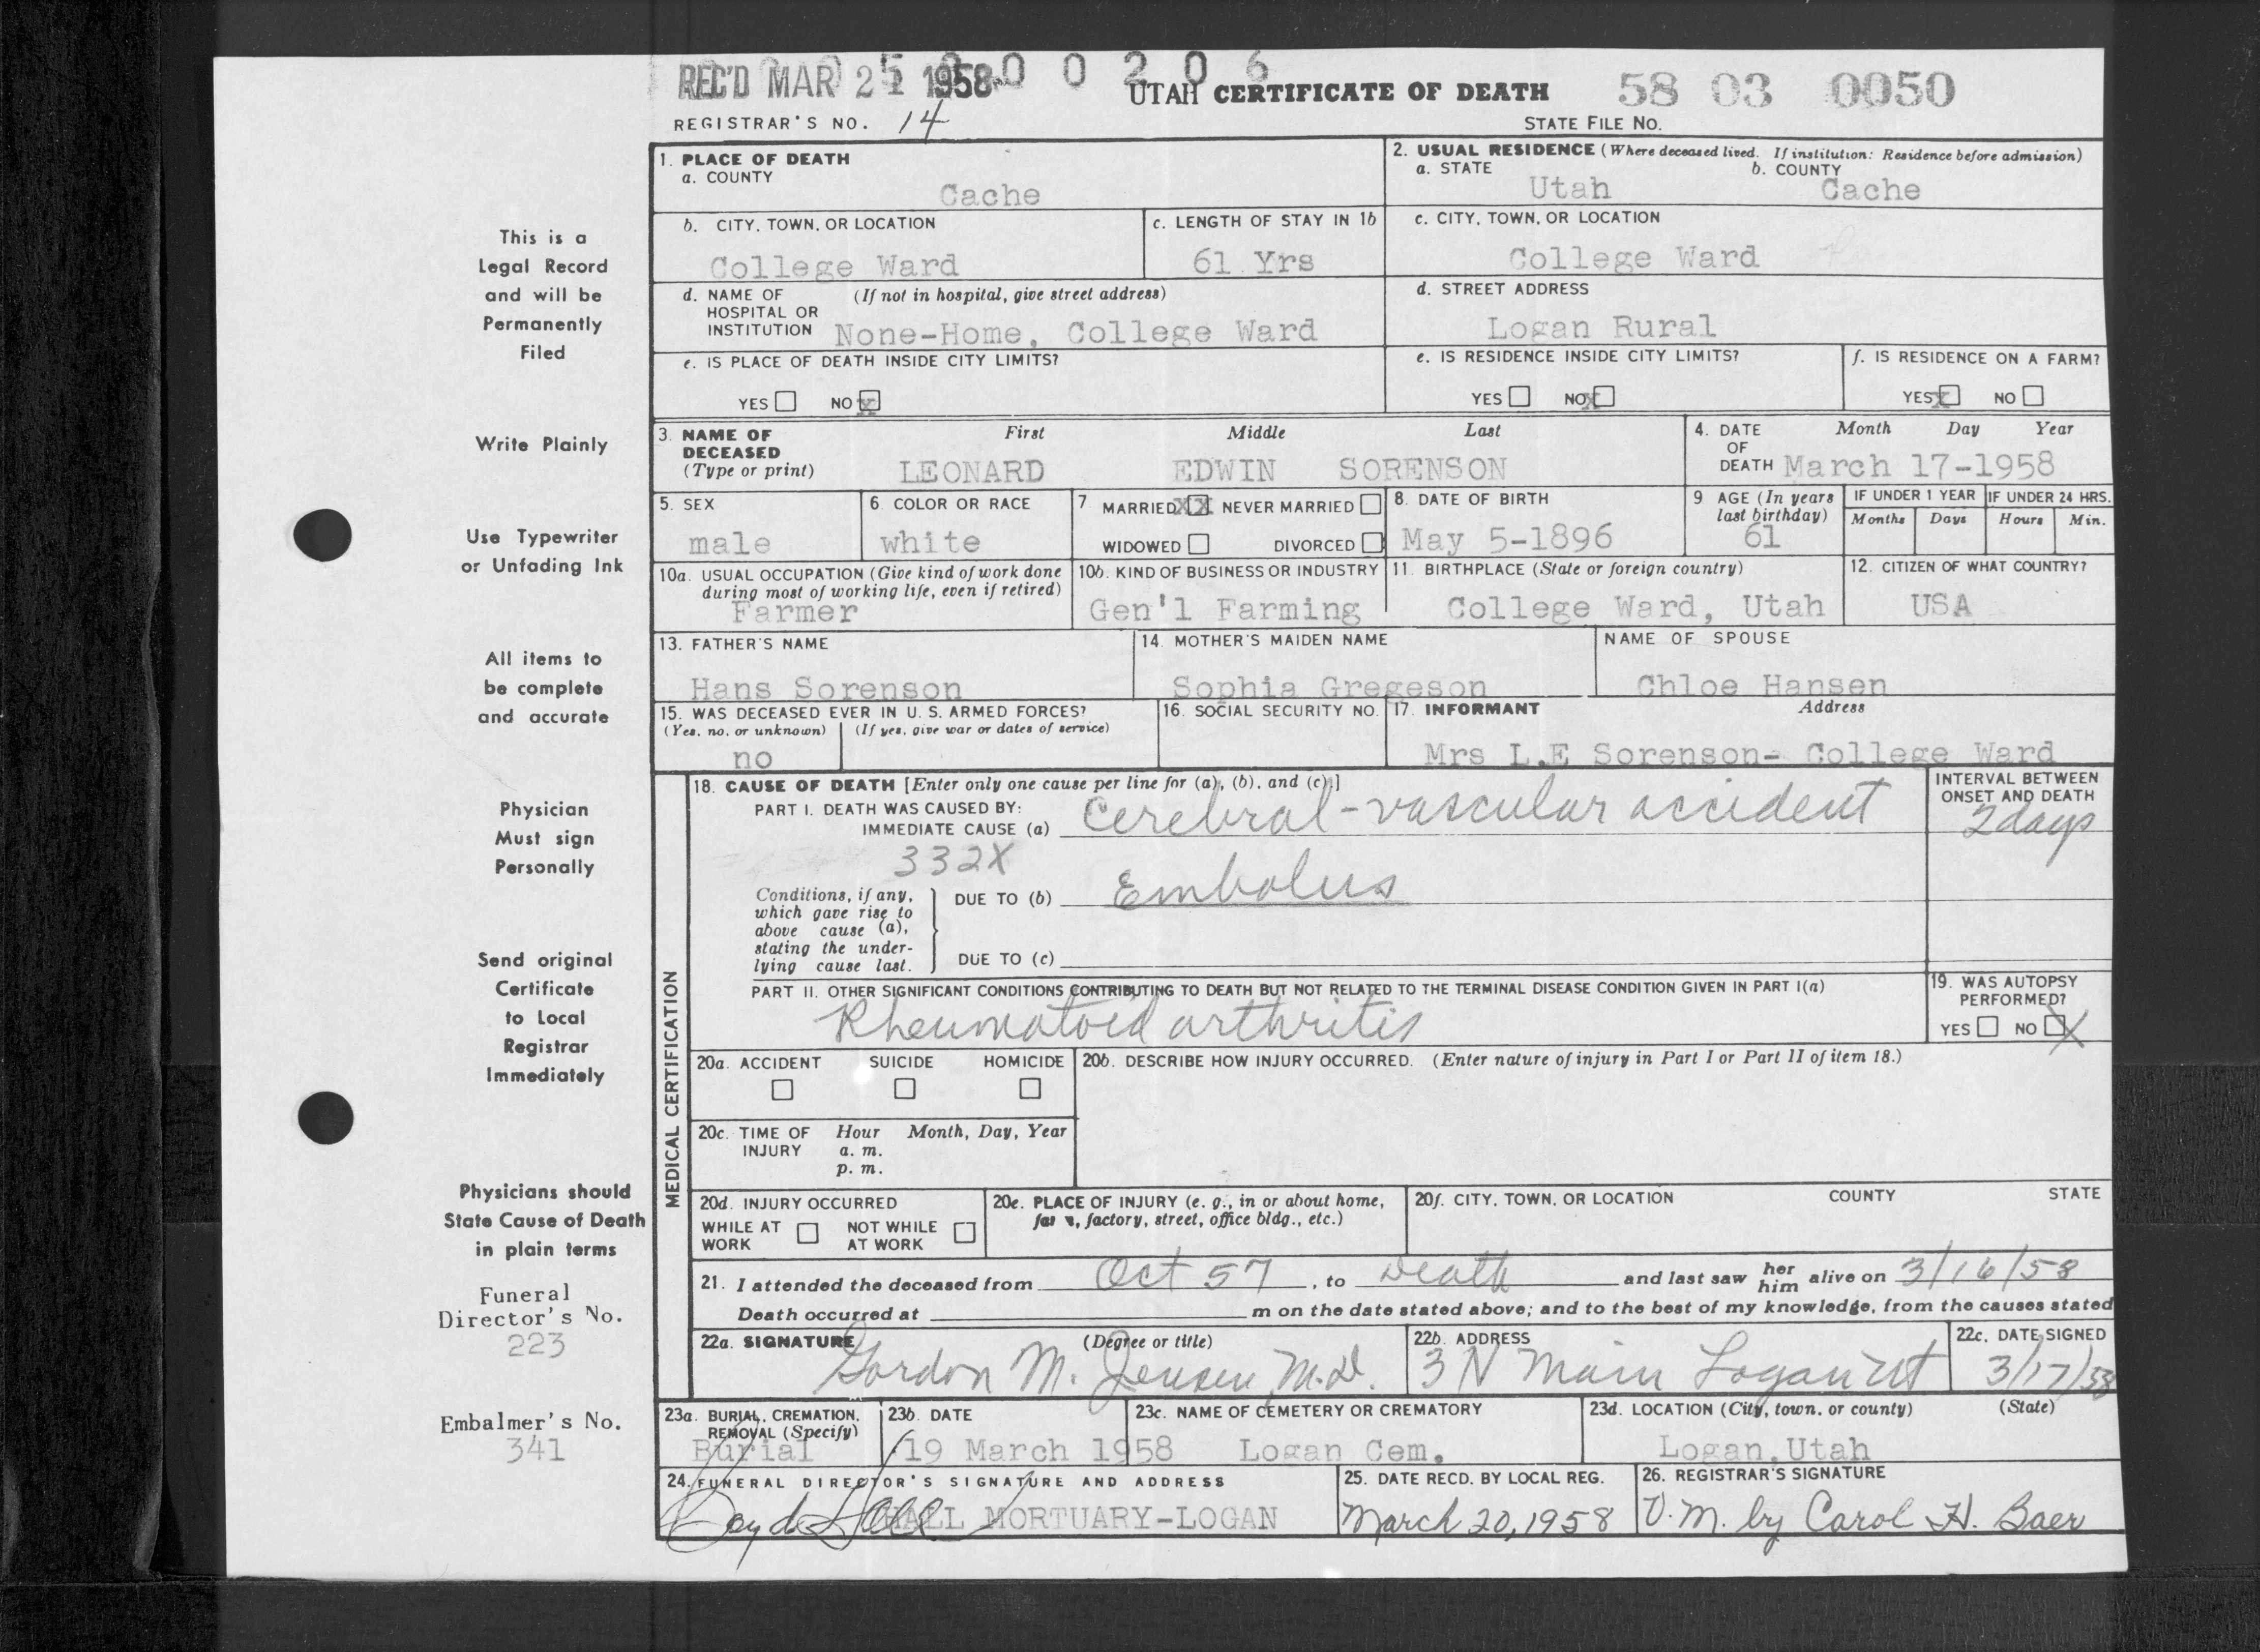 REC'D MAR 21 1958 0 0 2 0 6
UTAH CERTIFICATE OF DEATH 58 03 0050
REGISTRAR'S NO. 14 STATE FILE NO.
1. PLACE OF DEATH
a. COUNTY
Cache
2. USUAL RESIDENCE (Where deceased lived. If institution: Residence before admission)
a. STATE b. COUNTY
Utah Cache
b. CITY, TOWN, OR LOCATION
College Ward
c. LENGTH OF STAY IN 1b
61 Yrs
c. CITY, TOWN, OR LOCATION
College Ward
d. NAME OF (If not in hospital, give street address)
HOSPITAL OR
INSTITUTION None-Home, College Ward
d. STREET ADDRESS
Logan Rural
e. IS PLACE OF DEATH INSIDE CITY LIMITS?
YES NO X
e. IS RESIDENCE INSIDE CITY LIMITS?
YES NO X
f. IS RESIDENCE ON A FARM?
YES X NO
3. NAME OF First Middle Last
DECEASED
(Type or print) LEONARD EDWIN SORENSON
4. DATE Month Day Year
OF
DEATH March 17-1958
5. SEX
male
6. COLOR OR RACE
white
7 MARRIED XX NEVER MARRIED
WIDOWED DIVORCED
8. DATE OF BIRTH
May 5-1896
9 AGE (In years
last birthday)
61
IF UNDER 1 YEAR IF UNDER 24 HRS.
Months Days Hours Min.
10a. USUAL OCCUPATION (Give kind of work done
during most of working life, even if retired)
Farmer
10b. KIND OF BUSINESS OR INDUSTRY
Gen'l Farming
11. BIRTHPLACE (State or foreign country)
College Ward, Utah
12. CITIZEN OF WHAT COUNTRY?
USA
13. FATHER'S NAME
Hans Sorenson
14. MOTHER'S MAIDEN NAME
Sophia Gregeson
NAME OF SPOUSE
Chloe Hansen
15. WAS DECEASED EVER IN U. S. ARMED FORCES?
(Yes, no, or unknown) (If yes, give war or dates of service)
no
16. SOCIAL SECURITY NO.
17. INFORMANT Address
Mrs L.E Sorenson- College Ward
MEDICAL CERTIFICATION
18. CAUSE OF DEATH [Enter only one cause per line for (a), (b), and (c).]
PART I. DEATH WAS CAUSED BY:
IMMEDIATE CAUSE (a) Cerebral-vascular accident
INTERVAL BETWEEN
ONSET AND DEATH
2 days
332X
Conditions, if any,
which gave rise to
above cause (a),
stating the under-
lying cause last.
DUE TO (b) Embolus
DUE TO (c)
PART II. OTHER SIGNIFICANT CONDITIONS CONTRIBUTING TO DEATH BUT NOT RELATED TO THE TERMINAL DISEASE CONDITION GIVEN IN PART I(a)
Rheumatoid arthritis
19. WAS AUTOPSY
PERFORMED?
YES NO X
20a. ACCIDENT SUICIDE HOMICIDE
20b. DESCRIBE HOW INJURY OCCURRED. (Enter nature of injury in Part I or Part II of item 18.)
20c. TIME OF Hour Month, Day, Year
INJURY a. m.
p. m.
20d. INJURY OCCURRED
WHILE AT NOT WHILE
WORK AT WORK
20e. PLACE OF INJURY (e. g., in or about home,
factory, street, office bldg., etc.)
20f. CITY, TOWN, OR LOCATION COUNTY STATE
21. I attended the deceased from Oct 57, to Death and last saw her him alive on 3/16/58
Death occurred at m on the date stated above; and to the best of my knowledge, from the causes stated
22a. SIGNATURE (Degree or title)
Gordon M. Jensen, M.D.
22b. ADDRESS
3 N Main Logan Ut
22c. DATE SIGNED
3/17/58
23a. BURIAL, CREMATION,
REMOVAL (Specify)
Burial
23b. DATE
19 March 1958
23c. NAME OF CEMETERY OR CREMATORY
Logan Cem.
23d. LOCATION (City, town, or county) (State)
Logan, Utah
24. FUNERAL DIRECTOR'S SIGNATURE AND ADDRESS
HALL MORTUARY-LOGAN
25. DATE RECD. BY LOCAL REG.
March 20, 1958
26. REGISTRAR'S SIGNATURE
V.M. by Carol H. Baer
This is a
Legal Record
and will be
Permanently
Filed
Write Plainly
Use Typewriter
or Unfading Ink
All items to
be complete
and accurate
Physician
Must sign
Personally
Send original
Certificate
to Local
Registrar
Immediately
Physicians should
State Cause of Death
in plain terms
Funeral
Director's No.
223
Embalmer's No.
341